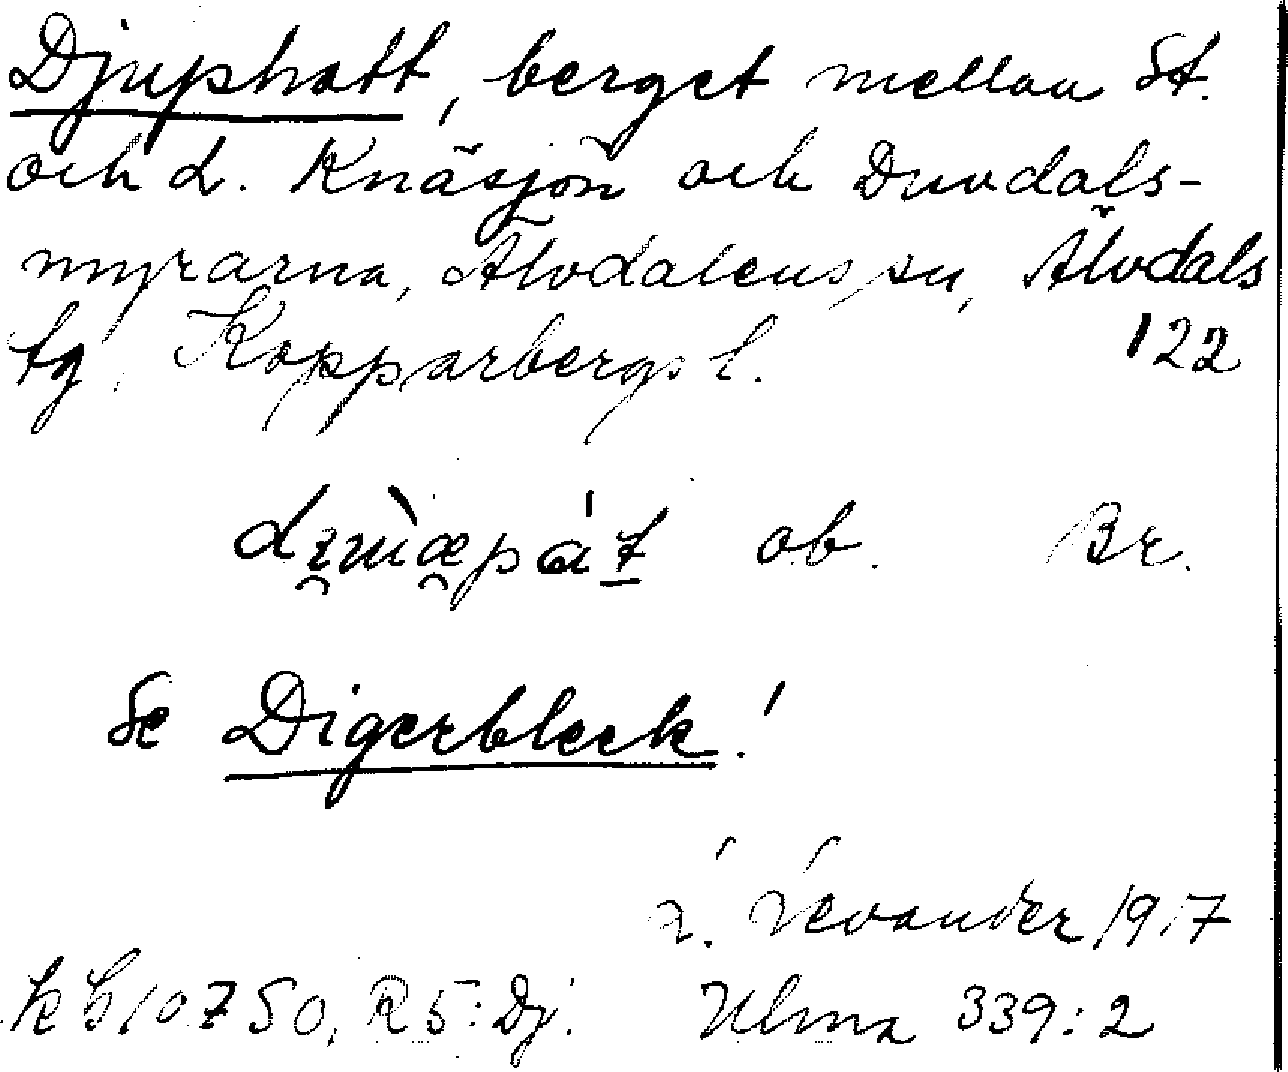 Djuphatt, berget mellan St.
och L. Knäsjön och Duvdals-
myrarna, Älvdalens sn, Älvdals
tg, Kopparbergs l. 122
ob. Br.
Se Digerbleck!
L. Levander 1917
kh 10750, R5: Dj. Ulma 339:2